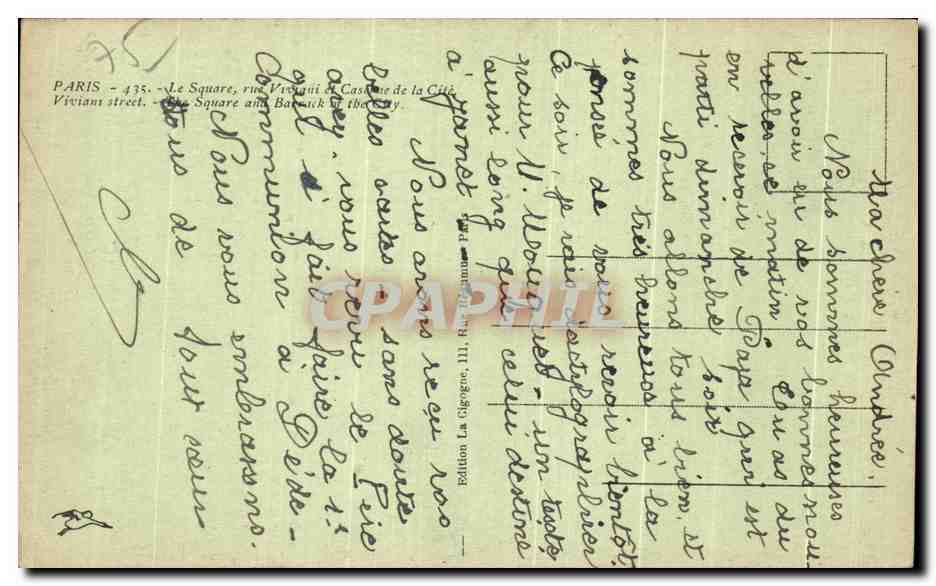 PARIS - 435. - Le Square, rue Viviani et Caserne de la Cité.
Viviani street. - The Square and Barrack of the City.
Edition La Gigogne, 111, Rue Réaumur - Paris
CPAPHIL
Ma chère Andrée.
Nous sommes heureuses
d'avoir eu de vos bonnes nou-
velles, ce matin. Tu as du
en recevoir de Papa qui est
parti dimanche soir
Nous allons tous bien, et
sommes très heureuses à la
pensée de vous revoir bientôt.
Ce soir, je vais dactylographier
pour M. un texte
aussi long que celui destiné
à
Nous avons reçu vos
belles cartes - sans doute
avez-vous revu le Père
qui a fait faire la 1è
Communion à Dédé -
Nous vous embrassons
tous de tout cœur